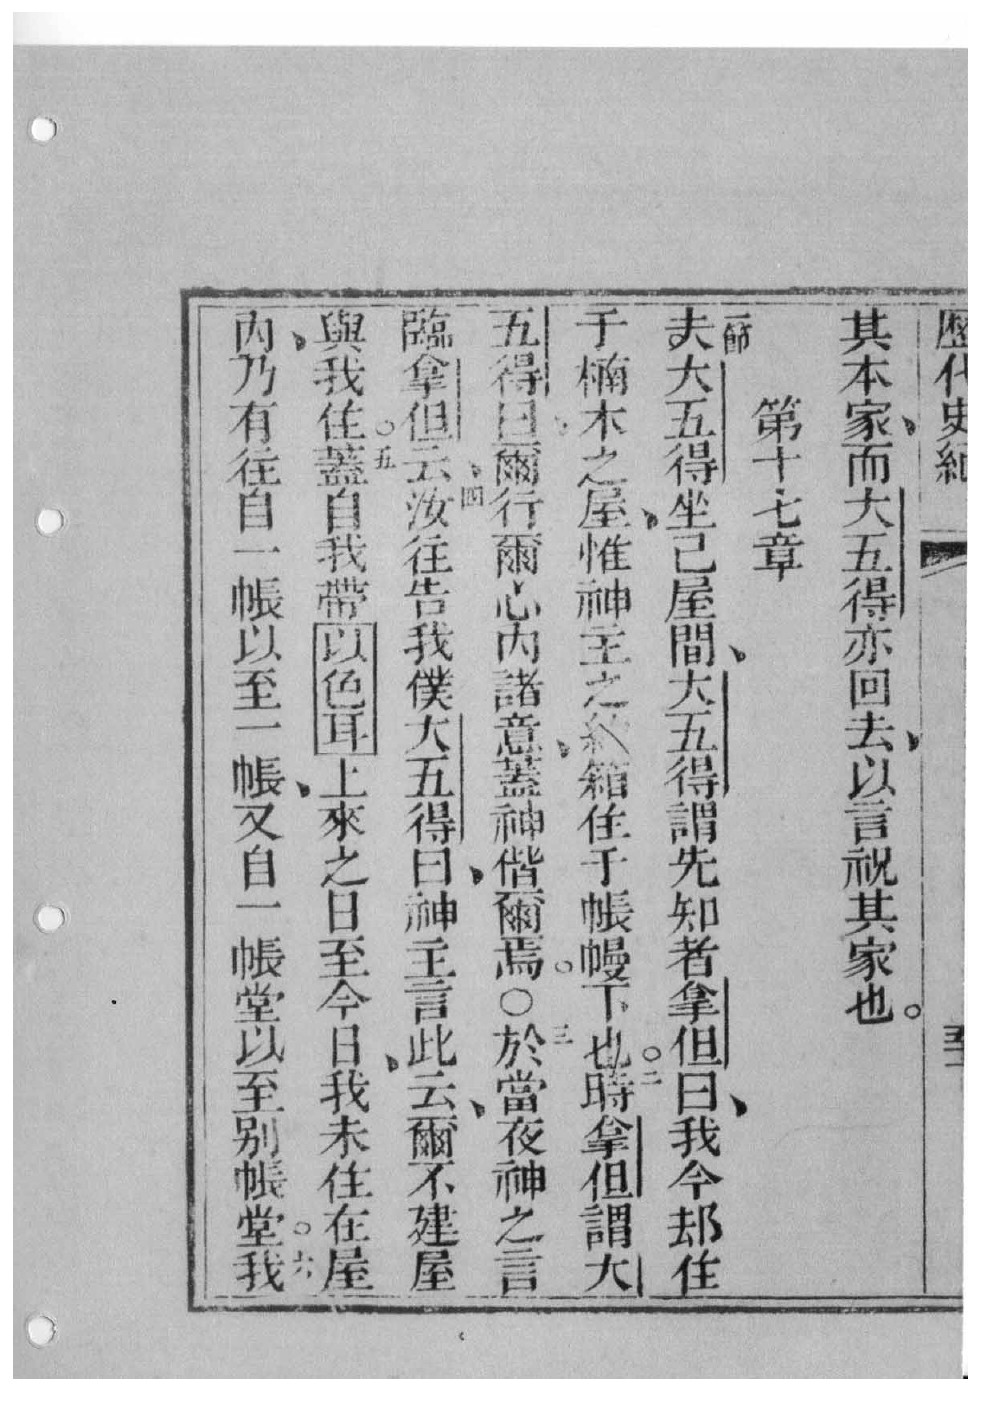 歷代史紀
其本家、而大五得亦回去、以言祝其家也。
第十七章
一節夫大五得坐己屋間、大五得謂先知者拿但曰、我今却住
于楠木之屋、惟神主之約箱住于帳幔下也。二時拿但謂大
五得曰、爾行爾心內諸意、蓋神偕爾焉。○三於當夜神之言
臨拿但云、四汝往告我僕大五得曰、神主言此云、爾不建屋
與我住。五蓋自我帶以色耳上來之日至今日、我未住在屋
內、乃有往自一帳以至一帳、又自一帳堂以至別帳堂。六我